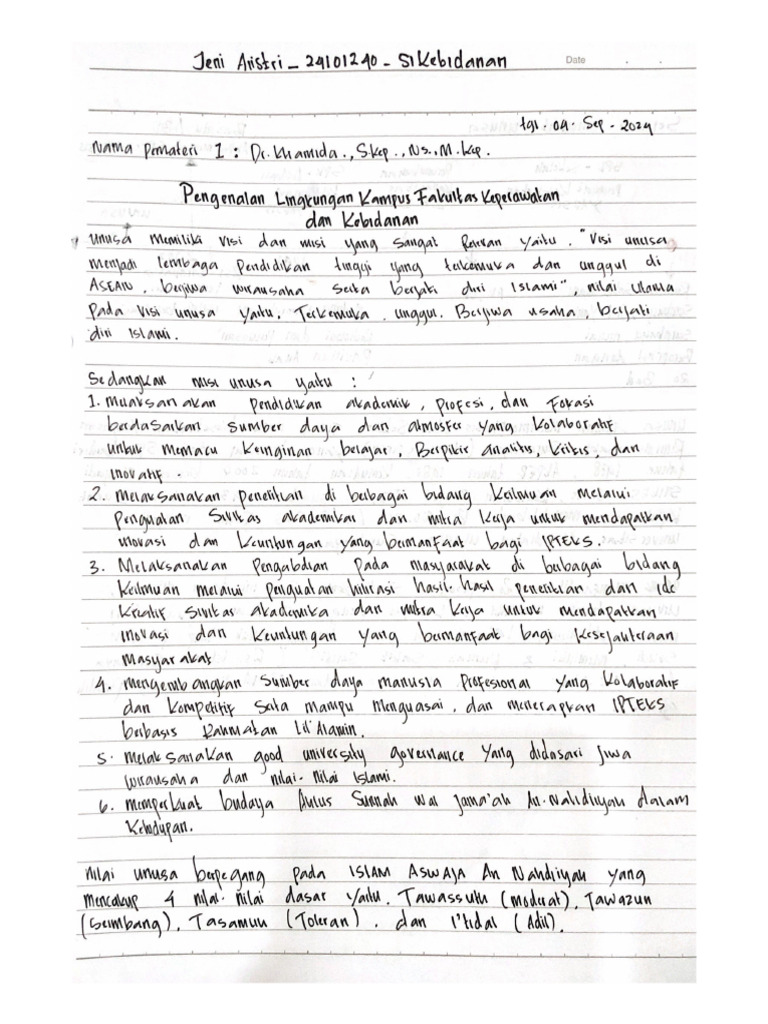 Jeni Aristri_ 24101240 - S1 Kebidanan
Date . .
tgl. 04. Sep - 2024
Nama Pemateri 1 : Dr. Khamida., Skep.., Ns., M.Kep.
Pengenalan Lingkungan Kampus Fakultas Keperawatan
dan Kebidanan
Unusa Memiliki Visi dan misi yang sangat Relevan yaitu. "Visi unusa
menjadi lembaga Pendidikan tinggi yang terkemuka dan unggul di
ASEAN, berjiwa wirausaha serta berjati diri Islami", nilai utama
Pada Visi unusa yaitu. Terkemuka, unggul. Berjiwa usaha, berjati
diri Islami.
Sedangkan misi unusa yaitu :
1. Melaksanakan Pendidikan akademik, Profesi, dan Fokasi
berdasarkan sumber daya dan atmosfer yang Kolaboratif
untuk Memacu Keinginan belajar, Berpikir analitis, Kritis, dan
inovatif.
2. Melaksanakan penelitian di berbagai bidang Keilmuan melalui
Penguatan Sivitas akademikas dan mitra Kerja untuk mendapatkan
inovasi dan Keuntungan yang bermanfaat bagi IPTEKS.
3. Melaksanakan Pengabdian Pada masyarakat di berbagai bidang
Keilmuan melalui Penguatan hilirasi hasil-hasil penelitian dan ide
Kreatif Sivitas akademika dan mitra Kerja untuk mendapatkan
inovasi dan Keuntungan yang bermanfaat bagi Kesejahteraan
Masyarakat
4. mengembangkan Sumber daya manusia Profesional yang Kolaboratif
dan Kompetitif Serta mampu menguasai, dan menerapkan IPTEKS
berbasis Rahmatan Lil'Alamin.
5. melaksanakan good university governance yang didasari Jiwa
wirausaha dan nilai-nilai Islami.
6. memperkuat budaya Ahlus Sunnah Wal Jama'ah An-Nahdiyah dalam
Kehidupan.
Nilai unusa berpegang pada ISLAM ASWAJA An Nahdiyah yang
mencakup 4 nilai-nilai dasar yaitu. Tawassuth (moderat), Tawazun
(Seimbang), Tasamuh (Toleran), dan I'tidal (Adil).